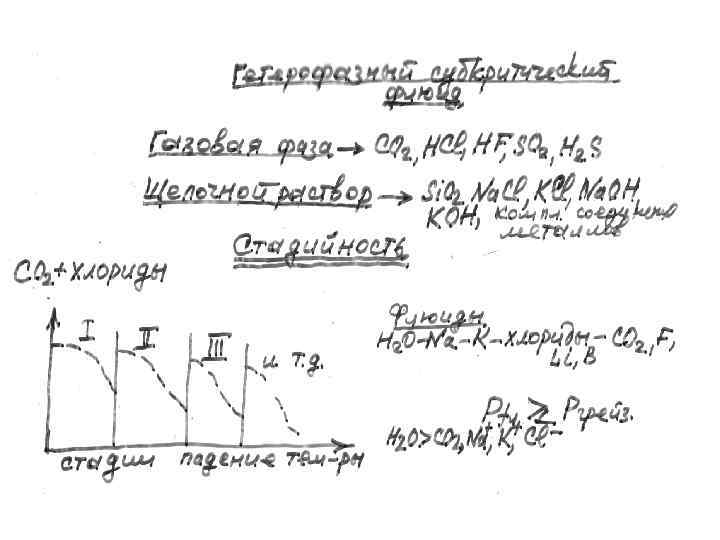 Гетерофазный субкритический
флюид
Газовая фаза → CO₂, HCl, HF, SO₂, H₂S
Щелочной раствор → SiO₂, NaCl, KCl, NaOH,
KOH, компл. соединено
металлов
Стадийность
CO₂ + хлориды
I II III и т.д.
стадии падение тем-ры
Флюиды
H₂O – Na – K – хлориды – CO₂, F,
Li, B
Pфл ≥ Pгрейз.
H₂O > CO₂, Na⁺, K⁺, Cl⁻